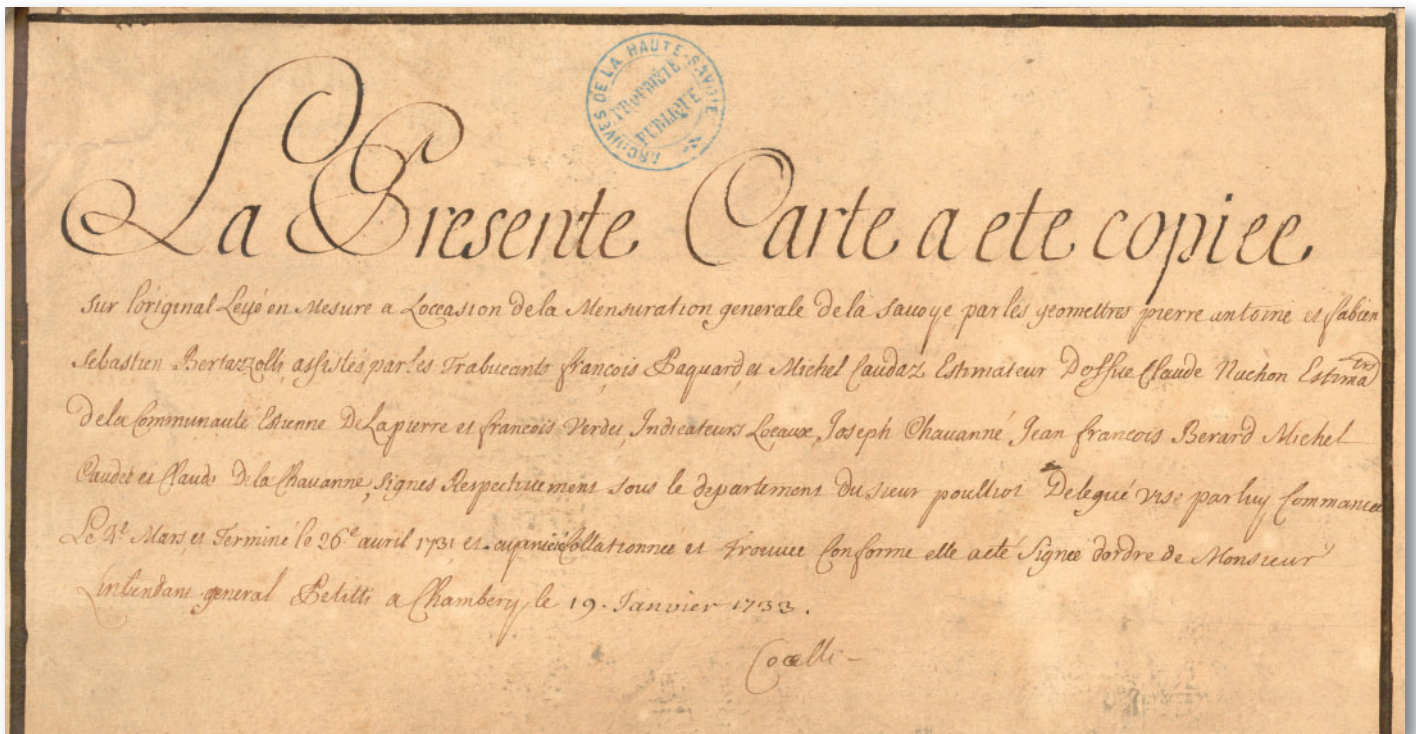 ARCHIVES DE LA HAUTE-SAVOIE
PROPRIÉTÉ
PUBLIQUE
La Presente Carte a ete copiee
sur l'original Levé en Mesure a Loccasion de la Mensuration generale de la savoye par les geomettres pierre antoine et fabien
sebastien Bertazzolli assistés par les Trabucants françois Paquard et Michel Caudaz Estimateur Doffice Claude Nuchon Estima.
de la Communauté Estienne De Lapierre et francois Verdet Indicateurs Locaux Joseph Chavanné Jean francois Berard Michel
Caudet et Claude De la Chavanne signes Respectivement sous le departement du sieur poulliot Delegué vise par luy Commancee
Le Mars et Terminé le 26.e avril 1731 et Collationnée et trouvee Conforme elle a eté signee dordre de Monsieur
Lintendant general Petitti a Chambery le 19. Janvier 1733.
Cocelli